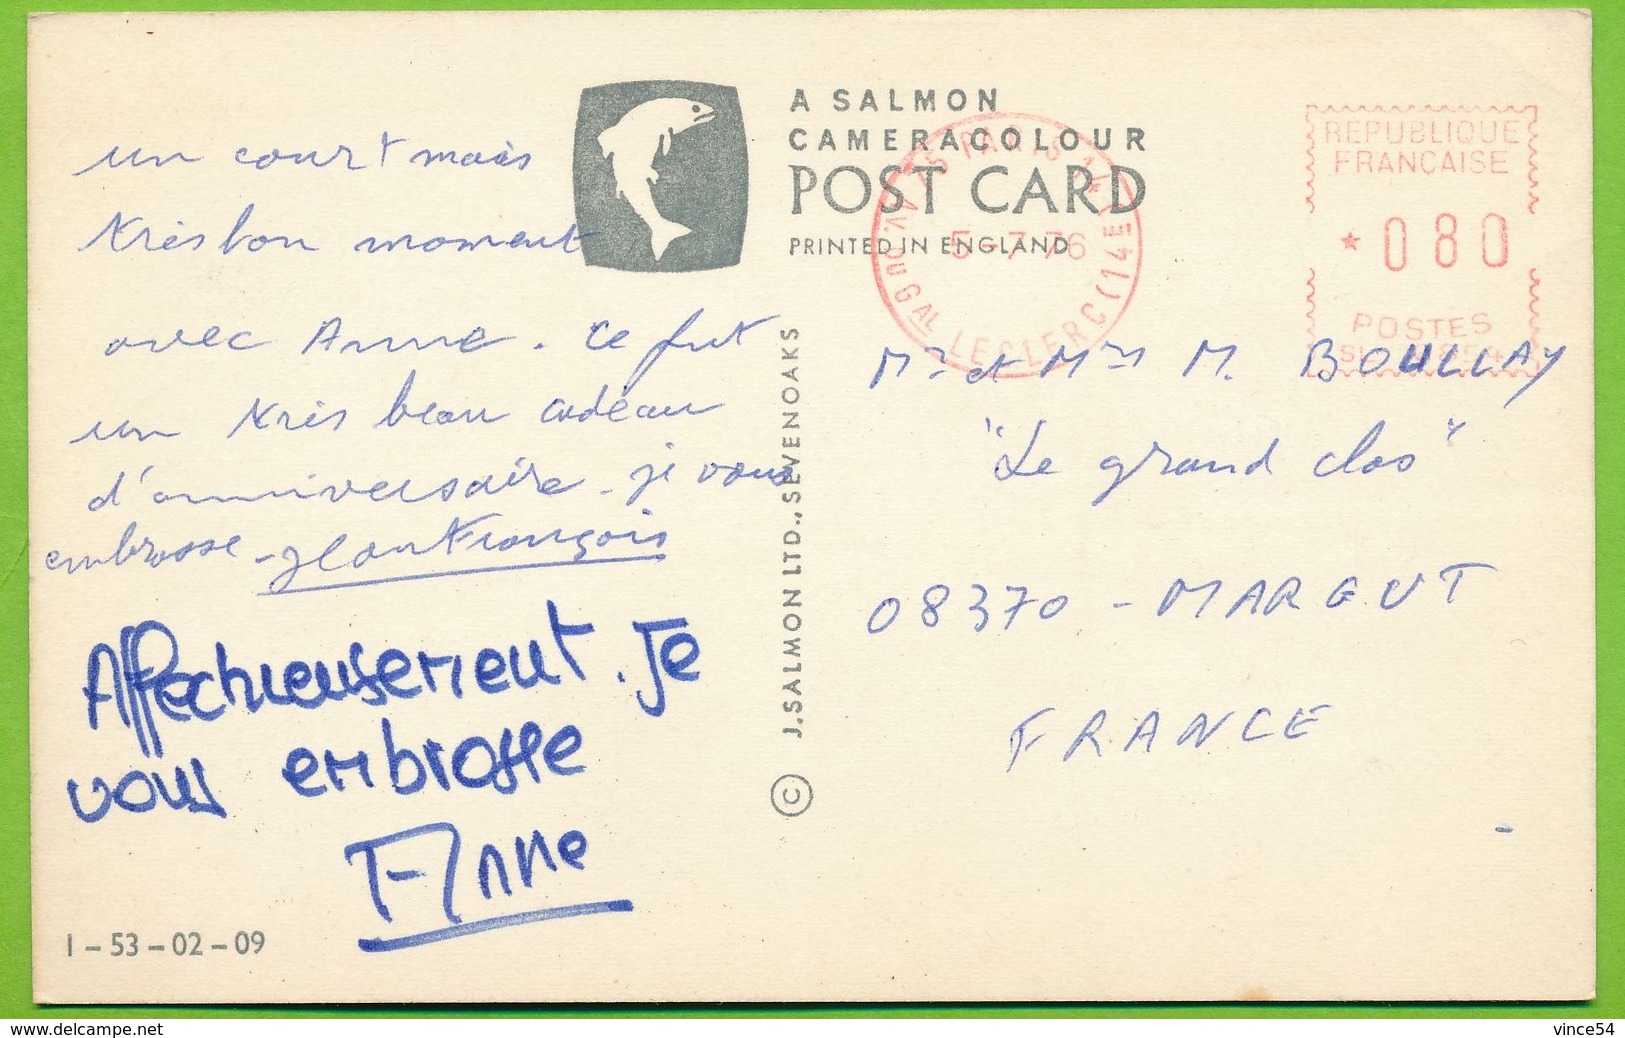 un court mais
très bon moment
avec Anne. ce fut
un très beau cadeau
d'anniversaire. je vous
embrasse - Jean François
Affectueusement. Je
vous embrasse
Anne
I - 53 - 02 - 09
A SALMON
CAMERACOLOUR
POST CARD
PRINTED IN ENGLAND
J. SALMON LTD., SEVENOAKS ©
75 PARIS
AV. DU GAL LECLERC (14E)
5 - 7 76
REPUBLIQUE
FRANÇAISE
* 080
POSTES
Mr et Mme M. BOULLAY
"Le grand clos"
08370 - MARGUT
FRANCE
www.delcampe.net
vince54